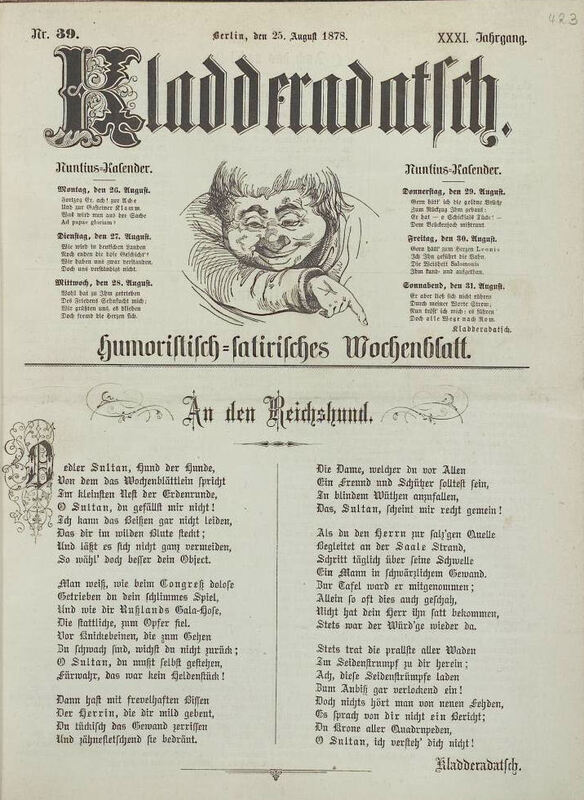 423
Nr. 39.
Berlin, den 25. August 1878.
XXXI. Jahrgang.
Kladderadatsch.
Nuntius-Kalender.
Montag, den 26. August.
Herzog Er, ach! zur Ache
Und zur Gasteiner Klamm.
Was wird nun aus der Sache
Ad papae gloriam!
Dienstag, den 27. August.
Wie wird in deutschen Landen
Noch enden die böse Geschicht'?
Wir haben uns zwar verstanden,
Doch uns verständigt nicht.
Mittwoch, den 28. August.
Wohl hat zu Ihm getrieben
Des Friedens Sehnsucht mich;
Wir grüßten uns, es blieben
Doch fremd die Herzen sich.
Nuntius-Kalender.
Donnerstag, den 29. August.
Gern hätt' ich die goldne Brücke
Zum Rückzug Ihm gebaut;
Er hat — o Schicksals Tücke! —
Dem Brückenjoch mißtraut.
Freitag, den 30. August.
Gern hätt' zum Herzen Leonis
Ich Ihn geführt die Bahn.
Die Weisheit Salomonis
Ihm kund- und aufgethan.
Sonnabend, den 31. August.
Er aber ließ sich nicht rühren
Durch meiner Worte Strom;
Nun tröst' ich mich: es führen
Doch alle Wege nach Rom.
Kladderadatsch.
Humoristisch-satirisches Wochenblatt.
An den Reichshund.
O edler Sultan, Hund der Hunde,
Von dem das Wochenblättlein spricht
Im kleinsten Nest der Erdenrunde,
O Sultan, du gefällst mir nicht!
Ich kann das Beißen gar nicht leiden,
Das dir im wilden Blute steckt;
Und läßt es sich nicht ganz vermeiden,
So wähl' doch besser dein Object.
Man weiß, wie beim Congreß dolose
Getrieben du dein schlimmes Spiel,
Und wie dir Rußlands Gala-Hose,
Die stattliche, zum Opfer fiel.
Vor Knickebeinen, die zum Gehen
Zu schwach sind, wichst du nicht zurück;
O Sultan, du mußt selbst gestehen,
Fürwahr, das war kein Heldenstück!
Dann hast mit frevelhaften Bissen
Der Herrin, die dir mild gebeut,
Du tückisch das Gewand zerrissen
Und zähnefletschend sie bedräut.
Die Dame, welcher du vor Allen
Ein Freund und Schützer solltest sein,
In blindem Wüthen anzufallen,
Das, Sultan, scheint mir recht gemein!
Als du den Herrn zur salz'gen Quelle
Begleitet an der Saale Strand,
Schritt täglich über seine Schwelle
Ein Mann in schwärzlichem Gewand.
Zur Tafel ward er mitgenommen;
Allein so oft dies auch geschah,
Nicht hat dein Herr ihn satt bekommen,
Stets war der Würd'ge wieder da.
Stets trat die prallste aller Waden
Im Seidenstrumpf zu dir herein;
Ach, diese Seidenstrümpfe laden
Zum Anbiß gar verlockend ein!
Doch nichts hört man von neuen Fehden,
Es sprach von dir nicht ein Bericht;
Du Krone aller Quadrupeden,
O Sultan, ich versteh' dich nicht!
Kladderadatsch.